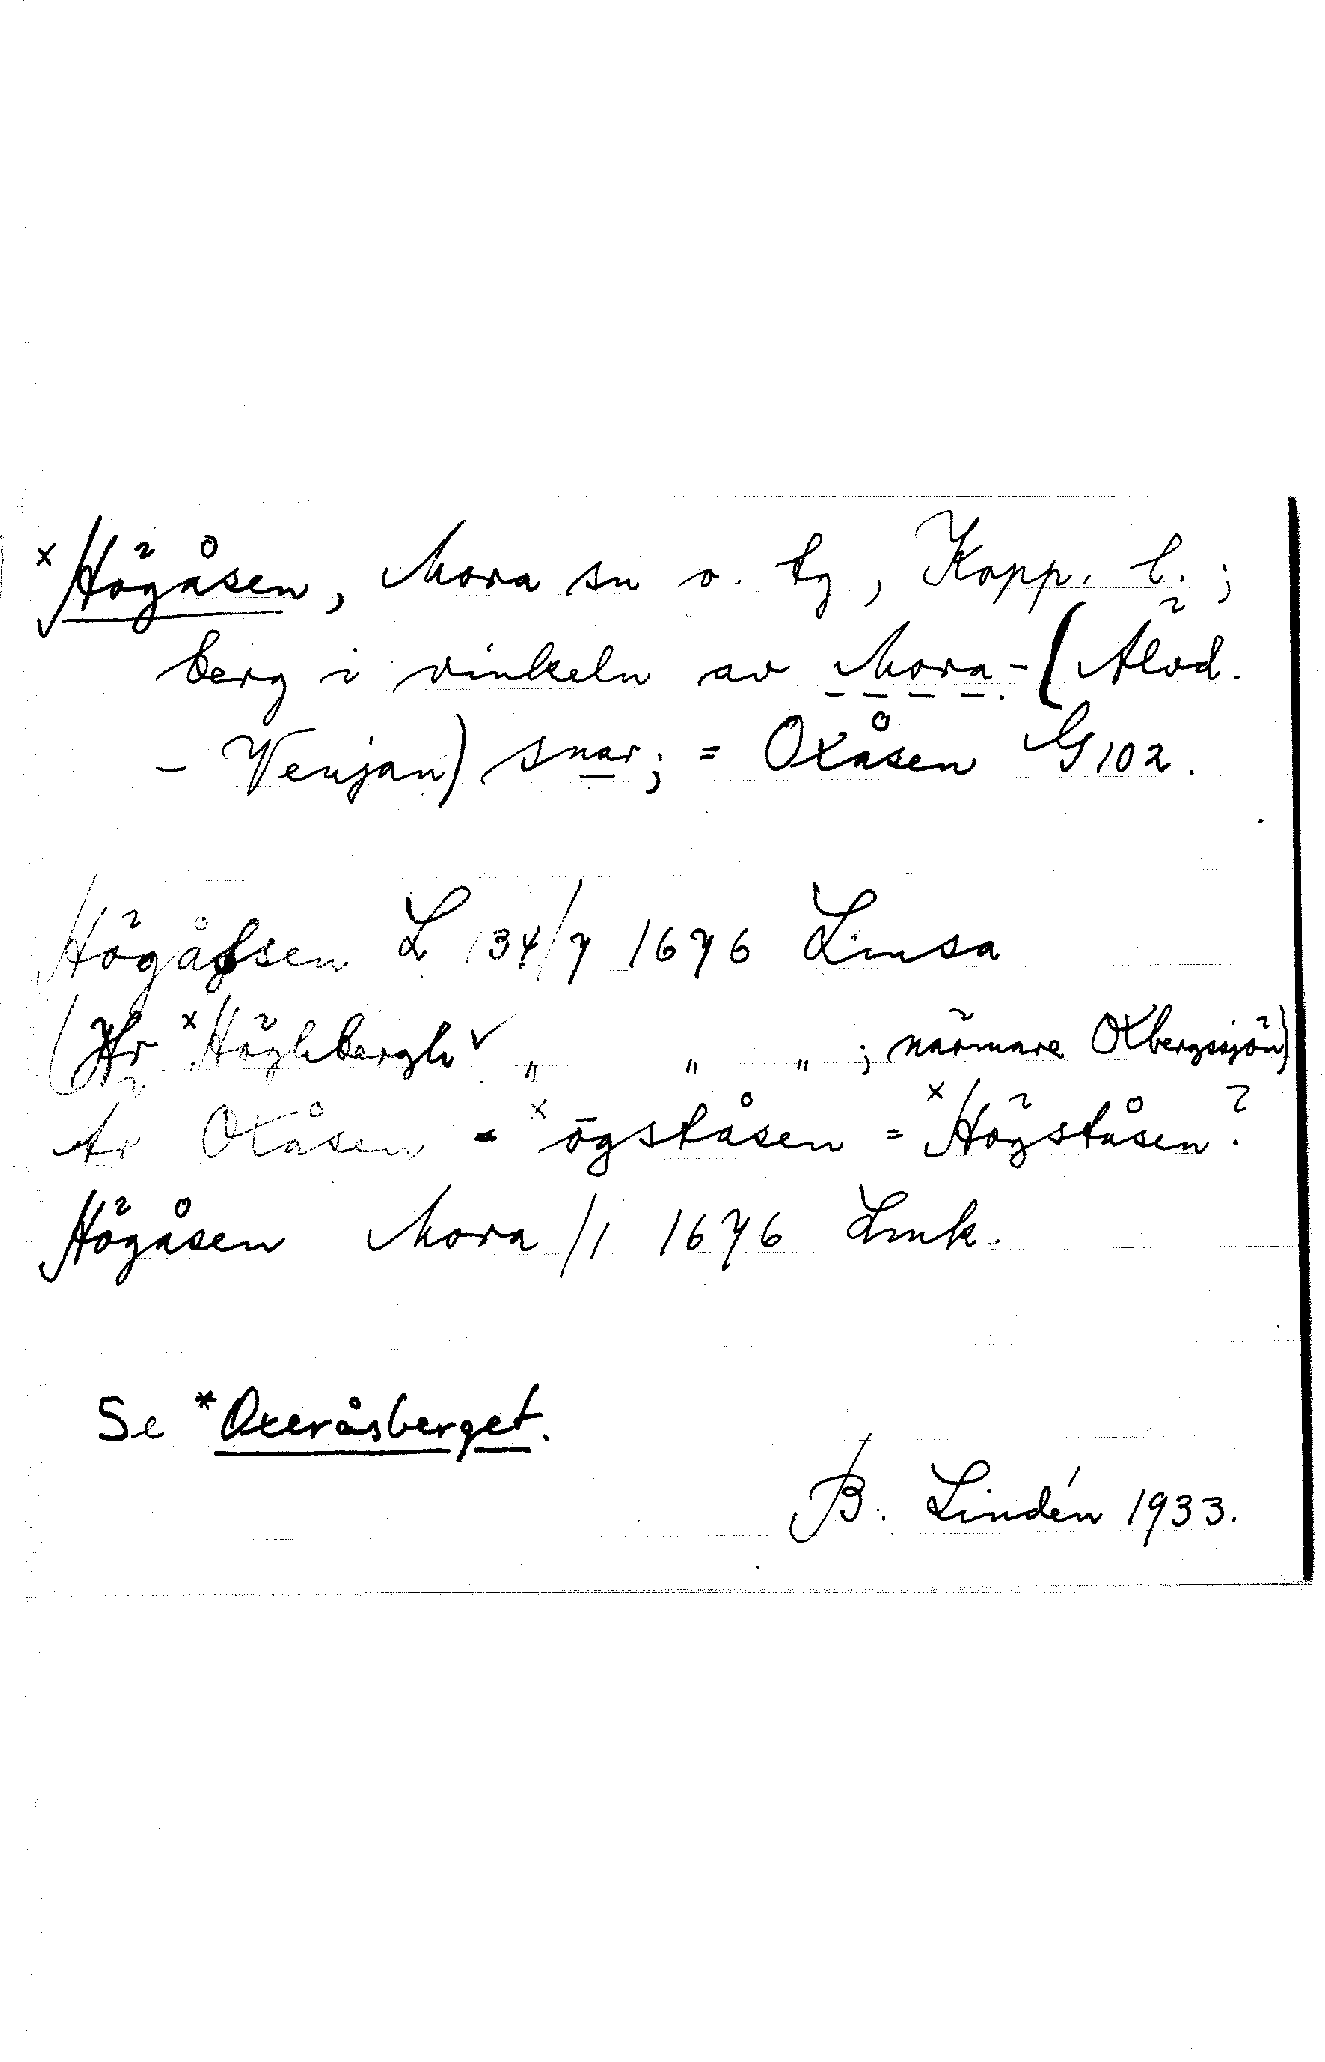 ×Högåsen, Mora sn o. tg, Kopp. l.;
berg i vinkeln av Mora-(Älvd.
- Venjan) snar; = Oxåsen G 102.
Högåssen L 134/7 1676 Lmsa
(Jfr ×Höghbergh ✓ „ „ „ ; närmare Oxbergssjön)
Är Oxåsen = ×ōgståsen = ×Högståsen?
Högåsen Mora /1 1676 Lmk.
Se *Oxeråsberget.
B. Lindén 1933.